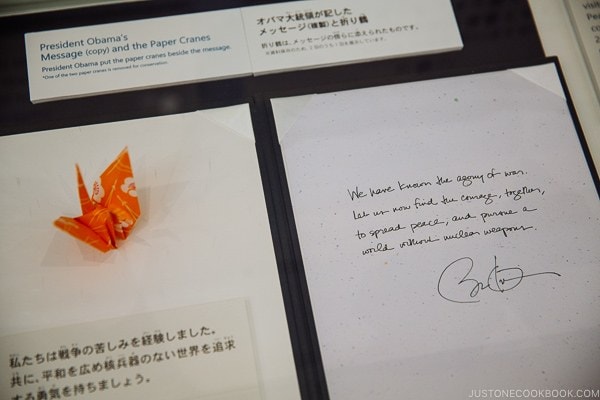 President Obama's
Message (copy) and the Paper Cranes
President Obama put the paper cranes beside the message.
*One of the two paper cranes is removed for conservation.
オバマ大統領が記した
メッセージ(複製)と折り鶴
折り鶴は、メッセージの傍らに添えられたものです。
We have known the agony of war.
Let us now find the courage, together,
to spread peace, and pursue a
world without nuclear weapons.
私たちは戦争の苦しみを経験しました。
共に、平和を広め核兵器のない世界を追求
する勇気を持ちましょう。
JUSTONECOOKBOOK.COM